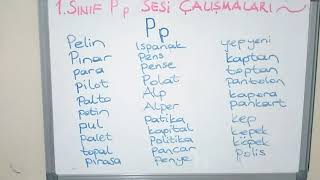 1. SINIF P p SESİ ÇALIŞMALARI
P p
Pelin
Pınar
para
pilot
Palto
patin
pul
palet
topal
pırasa
Ispanak
Pens
pense
Polat
Alp
Alper
patika
kapital
Politika
pancar
Penye
yepyeni
kaptan
toptan
pantolon
kapora
pankart
kep
kepek
köpek
polis